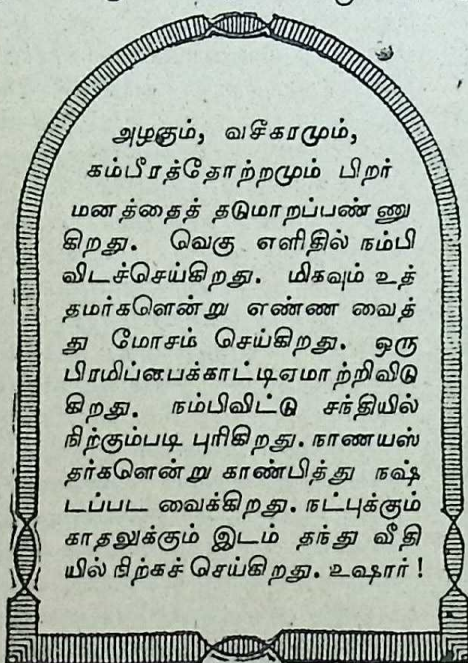 அழகும், வசீகரமும்,
கம்பீரத்தோற்றமும் பிறர்
மனத்தைத் தடுமாறப்பண் ணு
கிறது. வெகு எளிதில் நம்பி
விடச்செய்கிறது. மிகவும் உத்
தமர்களென்று எண்ண வைத்
து மோசம் செய்கிறது. ஒரு
பிரமிப்பைக்காட்டிஏமாற்றிவிடு
கிறது. நம்பிவிட்டு சந்தியில்
நிற்கும்படி புரிகிறது. நாணயஸ்
தர்களென்று காண்பித்து நஷ்
டப்பட வைக்கிறது. நட்புக்கும்
காதலுக்கும் இடம் தந்து வீதி
யில் நிற்கச் செய்கிறது. உஷார் !